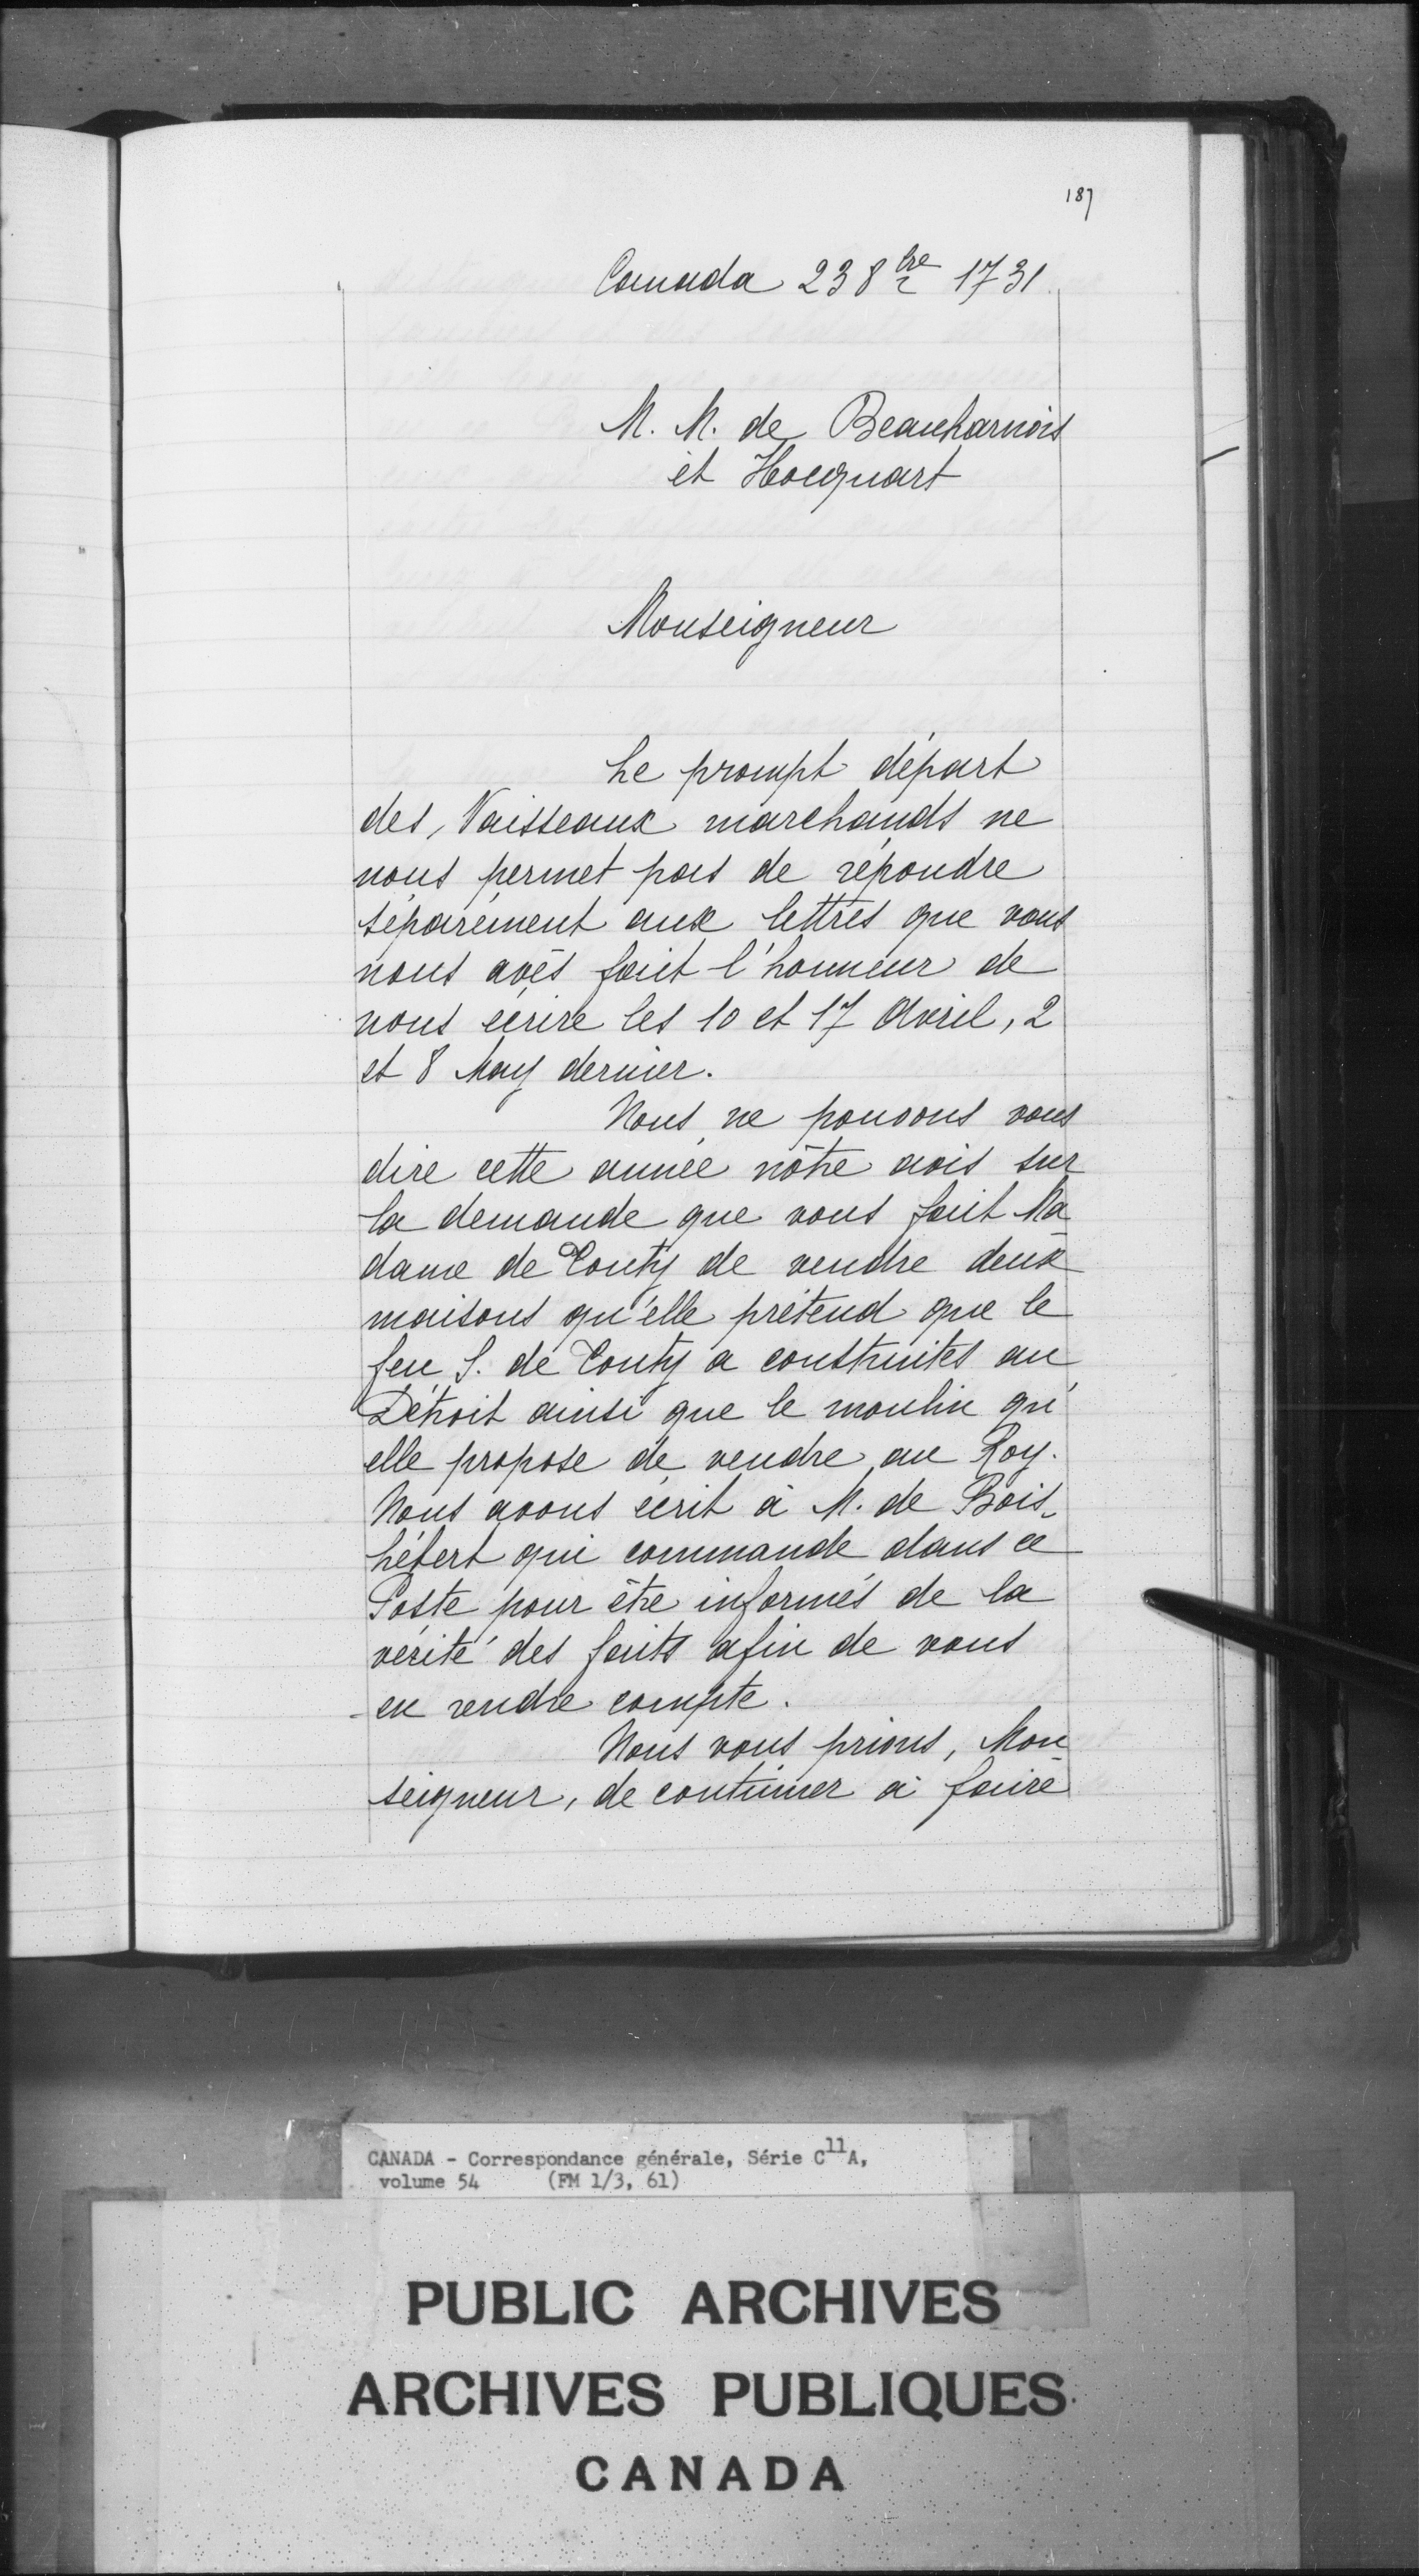 187
Canada 23 8bre 1731.
M. M. de Beauharnois
et Hocquart
Monseigneur
Le prompt départ
des Vaisseaux marchands ne
nous permet pas de répondre
séparément aux lettres que vous
nous avés fait l'honneur de
nous écrire les 10 et 17 Avril, 2
et 8 May dernier.
Nous ne pouvons vous
dire cette année nôtre avis sur
la demande que vous fait Ma
dame de Tonty de vendre deux
maisons qu'elle prétend que le
feu S. de Tonty a construites au
Détroit ainsi que le moulin qu'
elle propose de vendre au Roy.
Nous avons écrit à M. de Bois-
hébert qui commande dans ce
Poste pour être informés de la
vérité des faits afin de vous
en rendre compte.
Nous vous prions, Mon
seigneur, de continuer à faire
CANADA - Correspondance générale, Série C11A,
volume 54 (FM 1/3, 61)
PUBLIC ARCHIVES
ARCHIVES PUBLIQUES
CANADA